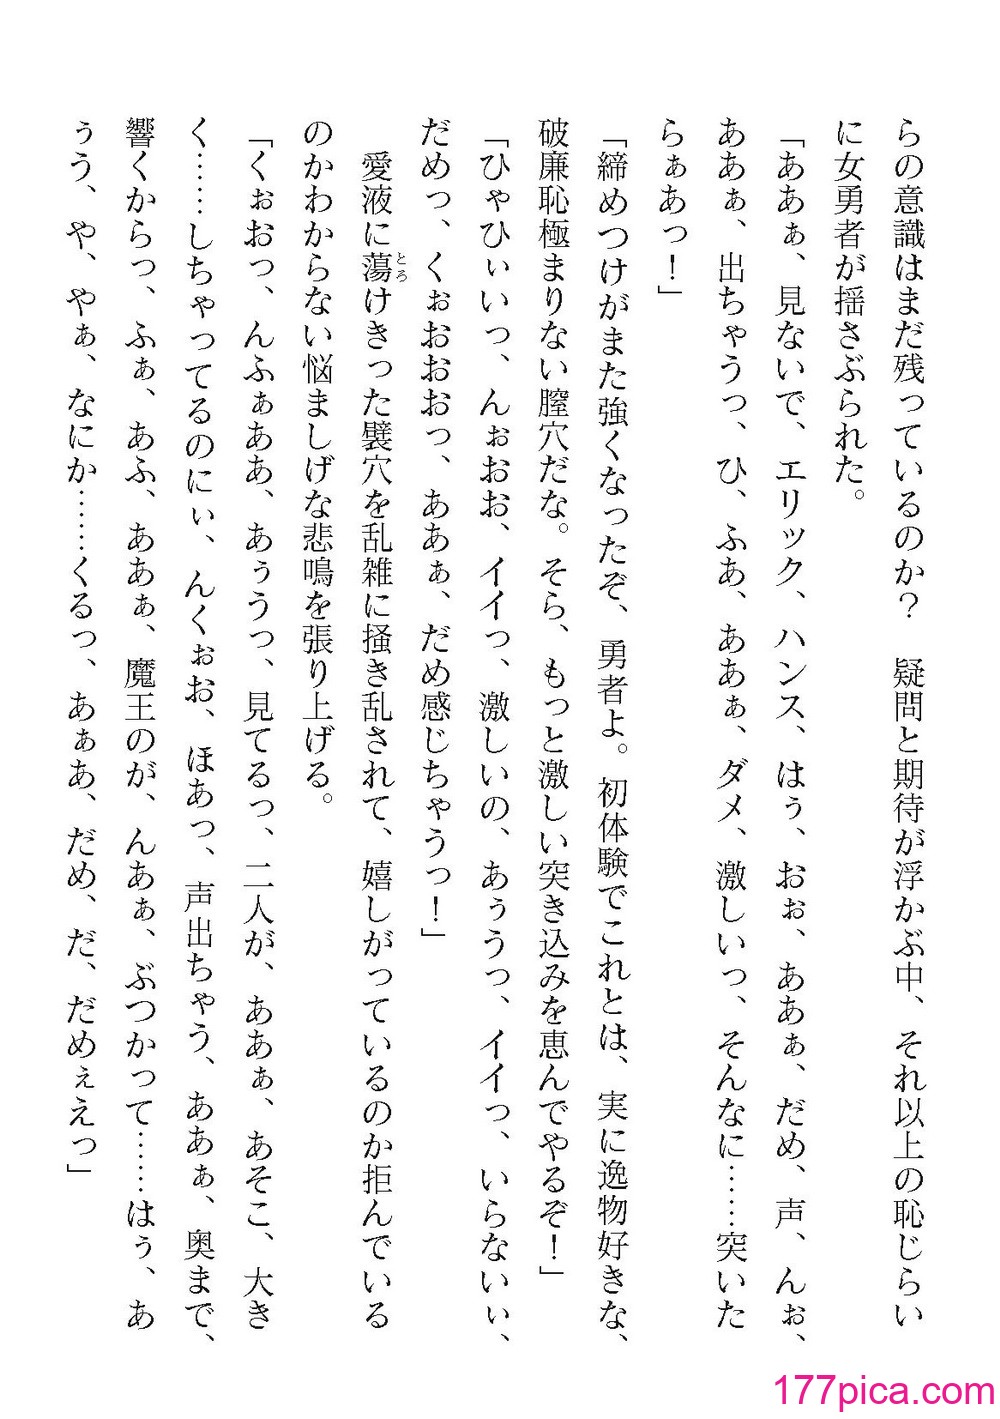 らの意識はまだ残っているのか？　疑問と期待が浮かぶ中、それ以上の恥じらい
に女勇者が揺さぶられた。
「ああぁ、見ないで、エリック、ハンス、はぅ、おぉ、ああぁ、だめ、声、んぉ、
ああぁ、出ちゃうっ、ひ、ふあ、ああぁ、ダメ、激しいっ、そんなに……突いた
らぁあっ！」
「締めつけがまた強くなったぞ、勇者よ。初体験でこれとは、実に逸物好きな、
破廉恥極まりない膣穴だな。そら、もっと激しい突き込みを恵んでやるぞ！」
「ひゃひぃいっ、んぉおお、イイっ、激しいの、あぅうっ、イイっ、いらないぃ、
だめっ、くぉおおおっ、ああぁ、だめ感じちゃうっ！」
　愛液に蕩けきった襞穴を乱雑に掻き乱されて、嬉しがっているのか拒んでいる
とろ
のかわからない悩ましげな悲鳴を張り上げる。
「くぉおっ、んふぁああ、あぅうっ、見てるっ、二人が、ああぁ、あそこ、大き
く……しちゃってるのにぃ、んくぉお、ほあっ、声出ちゃう、ああぁ、奥まで、
響くからっ、ふぁ、あふ、ああぁ、魔王のが、んあぁ、ぶつかって……はぅ、あ
ぅう、や、やぁ、なにか……くるっ、あぁあ、だめ、だ、だめぇえっ」
177pica.com